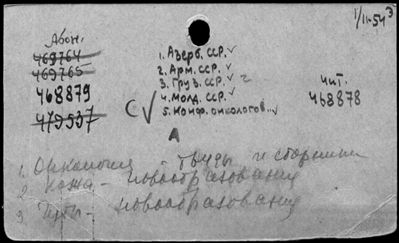 1/II-54 3
Абон.
469764
469765
468879
479537
1. Азерб. ССР. ✓
2. Арм. ССР. ✓
3. Груз. ССР. ✓ 2
4. Молд. ССР. ✓
5. Конф. онкологов.. ✓
С✓
А
чит.
468878
1. Онкология труды и сборники
2 Кожа - новообразования
3 Губы - новообразования